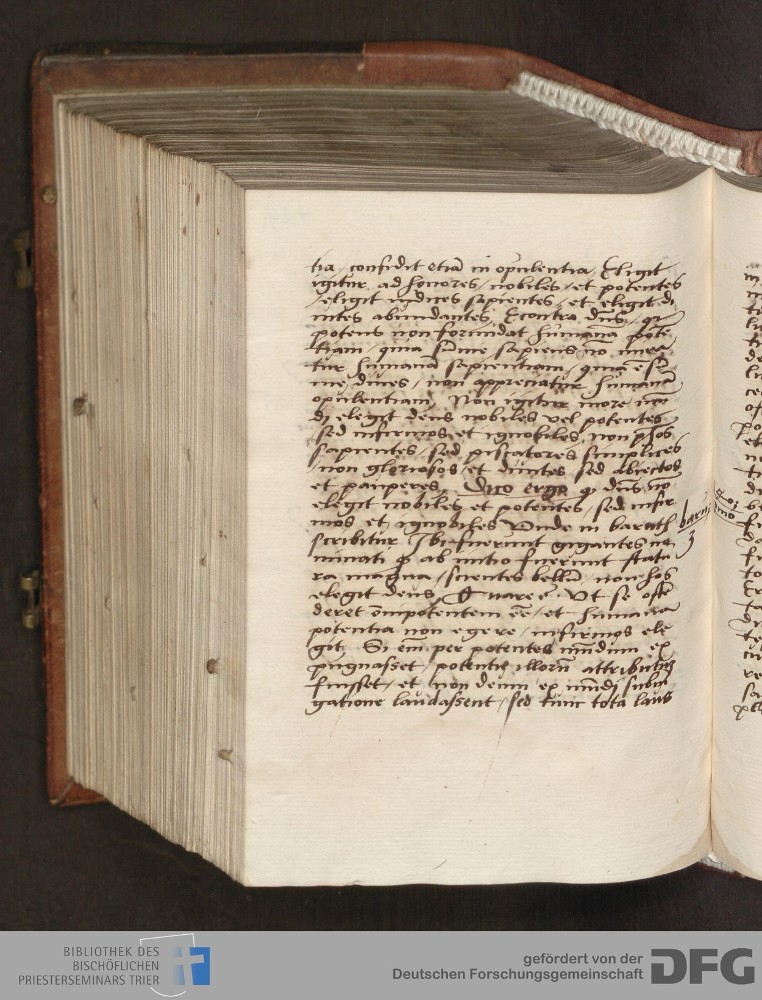 tia / confidit etiā in opulentia. Eligit
igitur ad honores / nobiles / et potentes
/ eligit iudices sapientes / et eligit di
uites abundantes, Econtra dn̄s / qr
potens non formidat humanā pote
tiam / quia sūme / sapiens nō mira
tur humanā sapientiam / quia ē sū
me diues / non appreciatur humanā
opulentiam, Non igitur more mū
di elegit deus nobiles vel potentes,
sed infirmos et ignobiles, non
sapientes / sed piscatores simplices
/ non gloriosos / et diuites sed abiectos
et pauperes, Dico ergo q̄ dn̄s nō
elegit nobiles et potentes / sed infir
mos et ignobiles Vnde in baruch
scribitur Ibi fuerunt gigantes no
minati q̄ ab initio fuerunt statu
ra magna / scientes bellū / non hos
elegit deus, Quare ē, Vt se osten
deret ōmipotentem ēē / et humana
potentia non egere / infirmos ele
git, Si em̄ per potentes mūdum ex
pugnasset / potentię illorū attributū
fuisset / et non deum ex mūdi subiu
gatione laudassent / sed tunc tota laus
baru
3
BIBLIOTHEK DES
BISCHÖFLICHEN
PRIESTERSEMINARS TRIER
gefördert von der
Deutschen Forschungsgemeinschaft
DFG